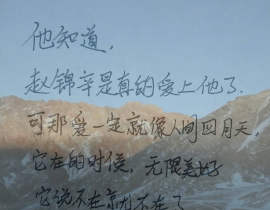 他知道,
赵锦辛是真的爱上他了.
可那爱一定就像人间四月天,
它在的时候,无限美好
它说不在就不在了